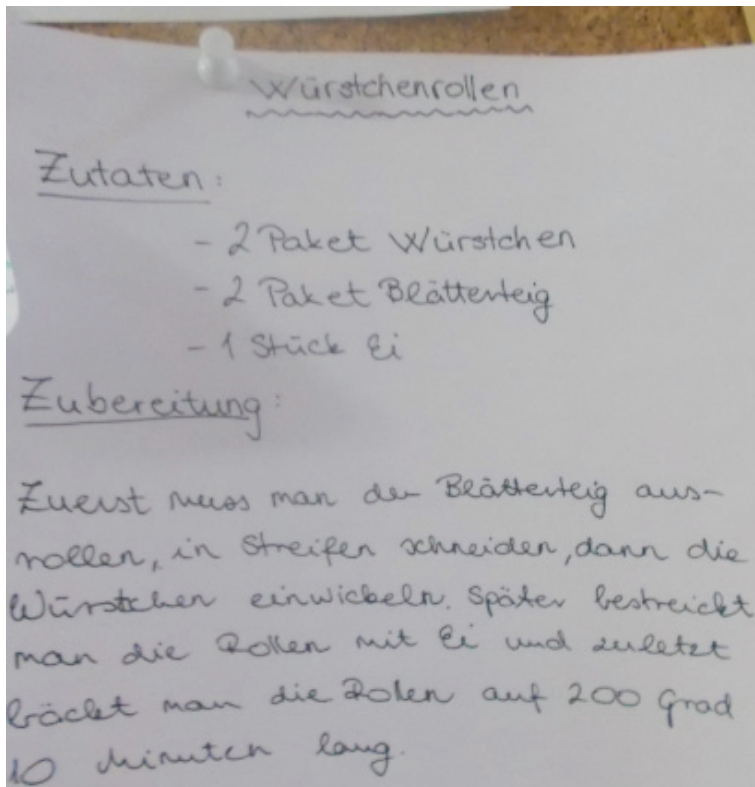 Würstchenrollen
Zutaten:
- 2 Paket Würstchen
- 2 Paket Blätterteig
- 1 Stück Ei
Zubereitung:
Zuerst muss man den Blätterteig aus-
rollen, in Streifen schneiden, dann die
Würstchen einwickeln. Später bestreickt
man die Rollen mit Ei und zuletzt
bäckt man die Rolen auf 200 Grad
10 Minuten lang.